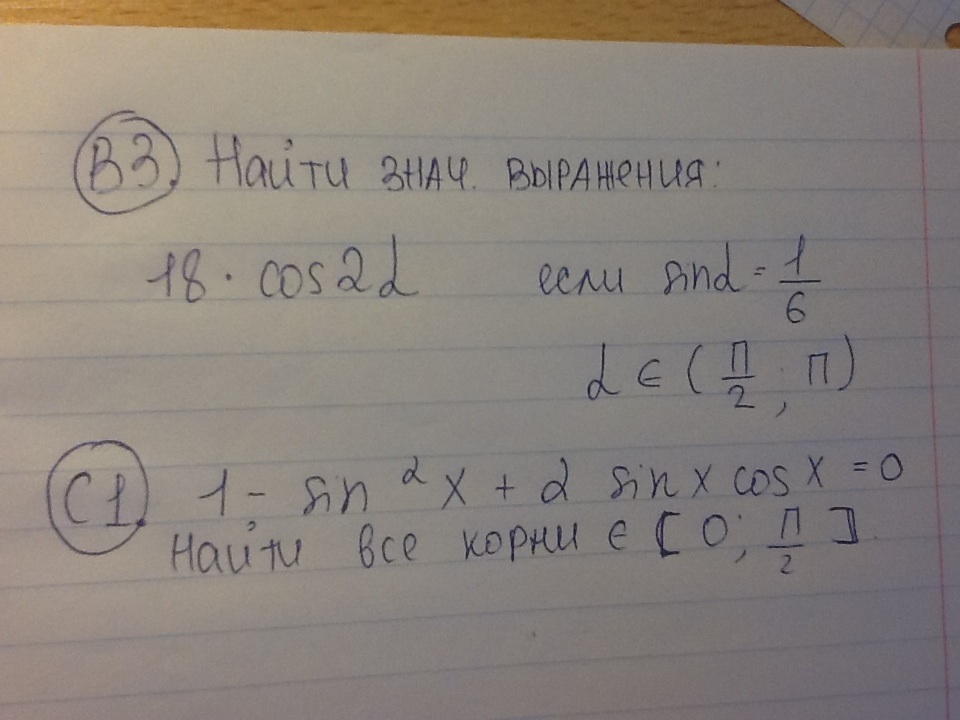 В3. Найти знач. выражения:
18 · cos2α если sinα = 1/6
α ∈ (П/2; П)
С1. 1 - sin²x + 2 sinx cosx = 0
Найти все корни ∈ [0; П/2].